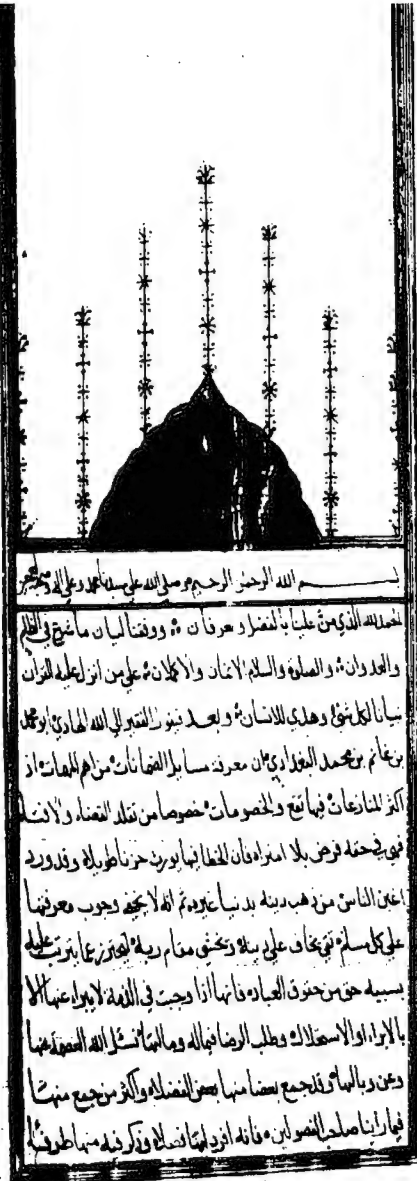 بسم الله الرحمن الرحيم وصلى الله على سيدنا محمد وعلى اله وصحبه
الحمد لله الذي من علينا بالفضل و عرفان ووفقنا لبيان ما شرع في الظلم
والعدوان والصلوة والسلام الاتمان والاكملان على من انزل عليه القران
تبيانا لكل شئ وهدي للانسان وبعد فيقول الفقير الي الله الهادي ابو محمد
بن غانم بن محمد البغدادي ان معرفة مسايل الضمانات من اهم المهمات اذ
اكثر المنازعات فيها تقع والخصومات خصوصا من تقلد القضاء والافتاء
فهي في حقه فرض بلا امتراء فان الخطا فيها يورث حزنا طويلا وقد ورد
اغبن الناس من ذهب دينه بدنيا غيره ثم انه لا يخفى وجوب معرفتها
على كل مسلم تقي يخاف على دينه ويخشى مقام ربه ليحترز عما يترتب عليه
بسببه حق من حقوق العباد فانها اذا وجبت في الذمة لا يبراء عنها الا
بالابراء او الاستحلال وطلب الرضا فيما له وما لها نسئل الله العصمة عنها
وعن وبالها وقد جمع بعضا منها بعض الفضلاء واكثر من جمع منها
فيما راينا صاحب الفصولين فانه افرد لها فصلا وذكر فيه منها طرفا